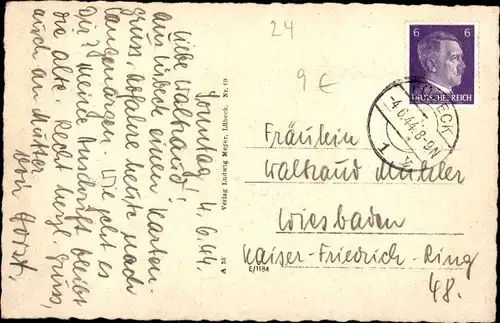 24
9 €
6 6
DEUTSCHES REICH
LÜBECK
4.6.44.8-9N
1
Sonntag 4.6.44.
Liebe Waltraud!
Aus Lübeck einen Karten-
gruss. Abfahre heute nach
Wie geht es
Dir? Meine Anschrift bleibt
die alte. Recht herzl. Gruss,
auch an Mutter
von Horst.
Verlag Ludwig Meyer, Lübeck. Nr. 59
A 53
E/1184
Fräulein
Waltraud Müller
Wiesbaden
Kaiser-Friedrich-Ring
48.